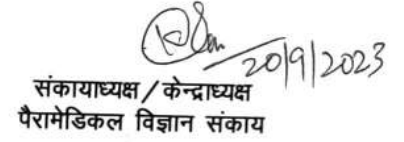 20/9/2023
संकायाध्यक्ष / केन्द्राध्यक्ष
पैरामेडिकल विज्ञान संकाय